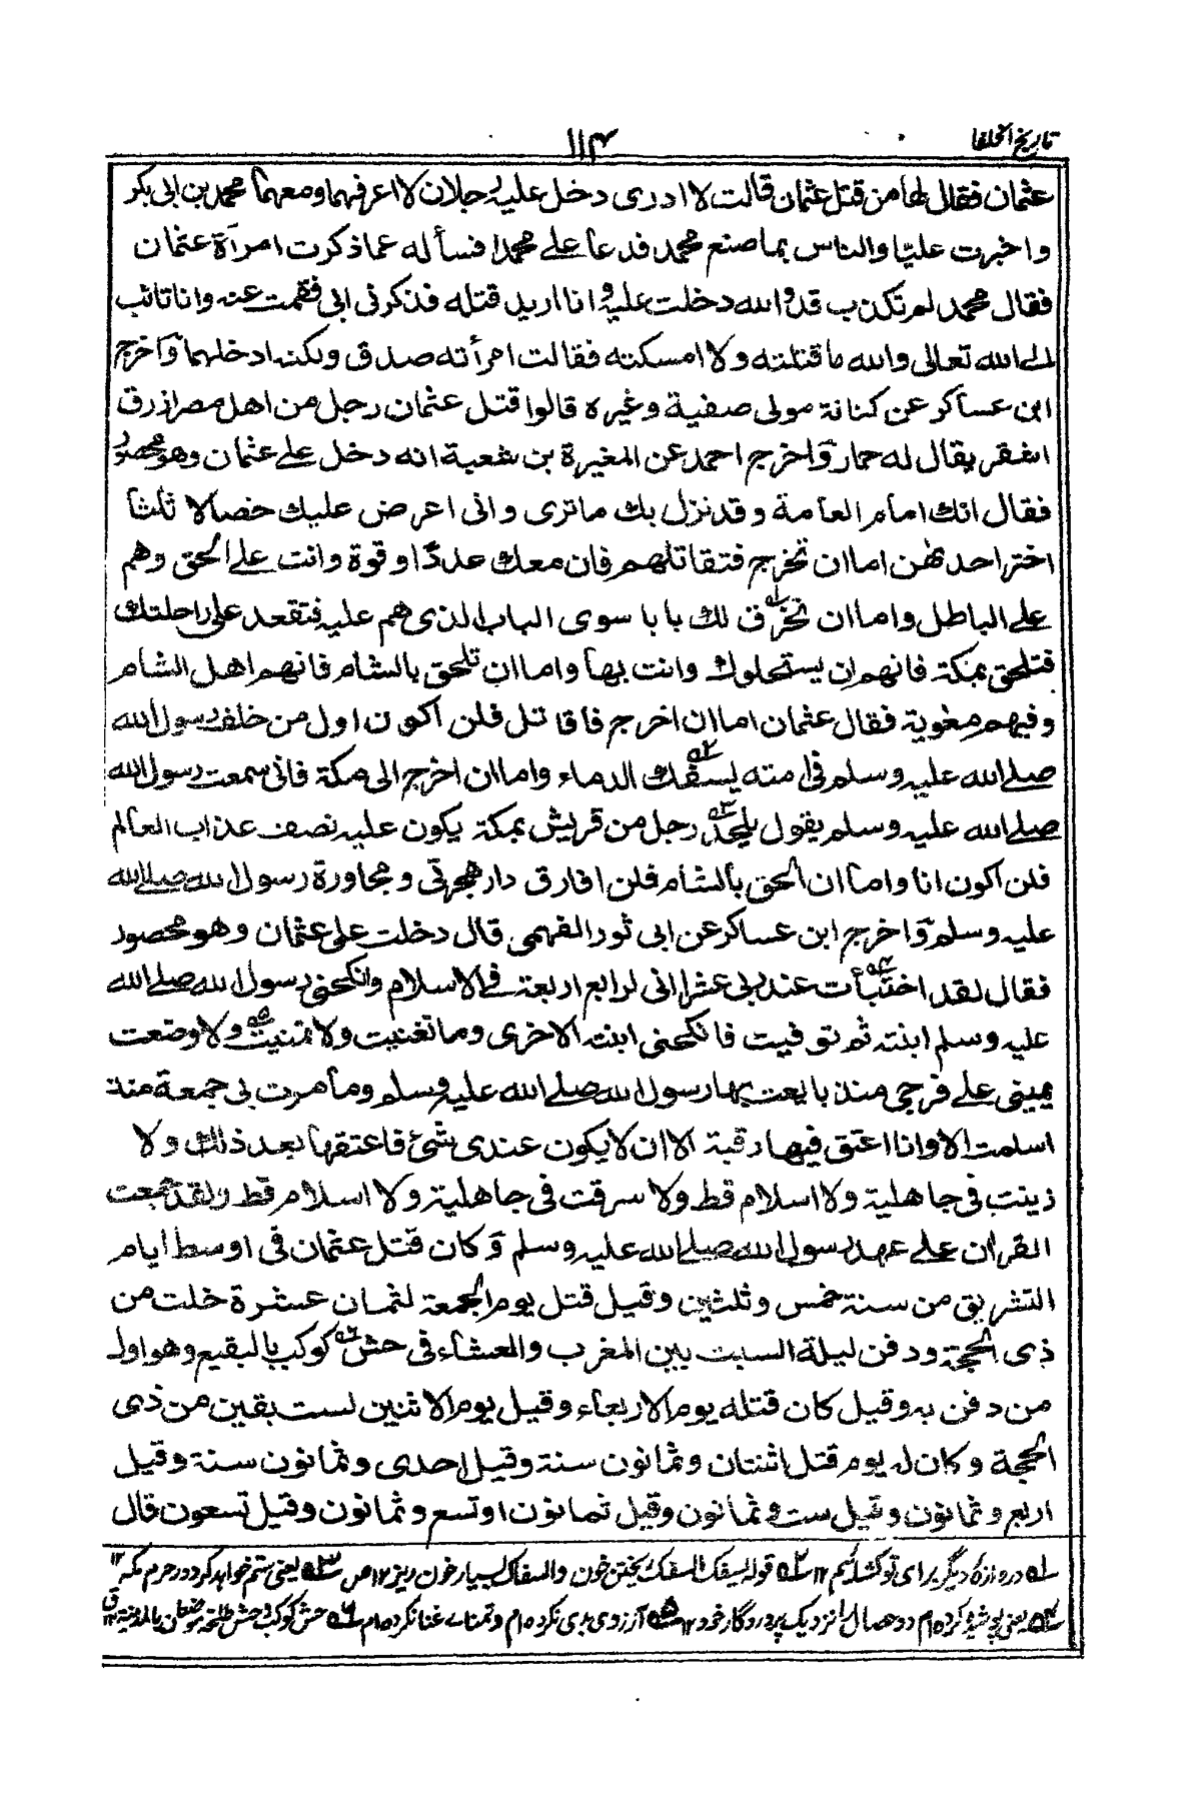 تاريخ الخلفا
١١٤
عثمان فقال لها من قتل عثمان قالت لا ادرى دخل عليه رجلان لا اعرفهما ومعهما محمد بن ابى بكر
واخبرت عليّا والناس بما صنع محمد فدعا علي محمدا فسأله عما ذكرت امرأة عثمان
فقال محمد لم تكذب قد والله دخلت عليه وانا اريد قتله فذكرنى ابى فقمت عنه وانا تائب
الى الله تعالى والله ما قتلته ولا امسكته فقالت امرأته صدق ولكنه ادخلهما وآخرج
ابن عساكر عن كنانة مولى صفية وغيره قالوا قتل عثمان رجل من اهل مصر ازرق
اشقر يقال له حمار وآخرج احمد عن المغيرة بن شعبة انه دخل علے عثمان وهو محصور
فقال انك امام العامة وقد نزل بك ما ترى وانى اعرض عليك خصالا ثلثا
اختر احدٰهن اما ان تخرج فتقاتلهم فان معك عددًا وقوة وانت علے الحق وهم
علے الباطل واما ان تخرق لك بابا سوى الباب الذى هم عليه فتقعد على راحلتك
فتلحق بمكة فانهم لن يستحلوك وانت بها واما ان تلحق بالشام فانهم اهل الشام
وفيهم معٰوية فقال عثمان اما ان اخرج فاقاتل فلن اكون اول من خلف رسول الله
صلے الله عليه وسلم فى امته يسفك الدماء واما ان اخرج الى مكة فانى سمعت رسول الله
صلے الله عليه وسلم يقول يلحد رجل من قريش بمكة يكون عليه نصف عذاب العالم
فلن اكون انا واما ان الحق بالشام فلن افارق دار هجرتى ومجاورة رسول الله صلے الله
عليه وسلم وآخرج ابن عساكر عن ابى ثور الفهمى قال دخلت على عثمان وهو محصور
فقال لقد اختبأت عند ربى عشرا انى لرابع اربعة فے الاسلام وانكحنى رسول الله صلے الله
عليه وسلم ابنته ثم توفيت فانكحنى ابنته الاخرى وما تغنيت ولا تمنيت ولا وضعت
يمينى علے فرجى منذ بايعت بها رسول الله صلے الله عليه وسلم وما مرت بى جمعة منذ
اسلمت الا وانا اعتق فيها رقبة الا ان لا يكون عندى شئ فاعتقها بعد ذلك ولا
زينت فى جاهلية ولا اسلام قط ولا سرقت فى جاهلية ولا اسلام قط ولقد جمعت
القران علے عهد رسول الله صلے الله عليه وسلم وكان قتل عثمان فى اوسط ايام
التشريق من سنة خمس وثلثين وقيل قتل يوم الجمعة لثمان عشرة خلت من
ذى الحجة ودفن ليلة السبت بين المغرب والعشاء فى حش كوكب بالبقيع وهو اول
من دفن به وقيل كان قتله يوم الاربعاء وقيل يوم الاثنين لست بقين من ذى
الحجة وكان له يوم قتل اثنتان وثمانون سنة وقيل احدى وثمانون سنة وقيل
اربع وثمانون وقيل ست وثمانون وقيل ثمانون او تسع وثمانون وقيل تسعون قال
له دروازه ديگر براى تو كشائيم ١٢ قوله يسفك السفك ريختن خون والسفاك بسيار خون ريز ١٢ ص يعنى ستم خواهد كرد در حرم مكه ١٢
يعنى پوشيده كرده ام ده خصال را نزديك پروردگار خود ١٢ آرزوى بدى نكرده ام وتمناے غنا نكرده ام حش كوكب وحش طلحة موضعان بالمدينة ١٢ ق